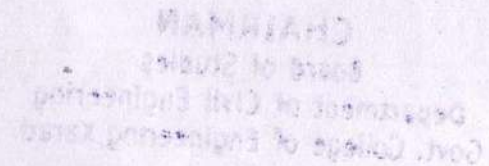 CHAIRMAN
Board of Studies
Department of Civil Engineering
Govt. College of Engineering Karad